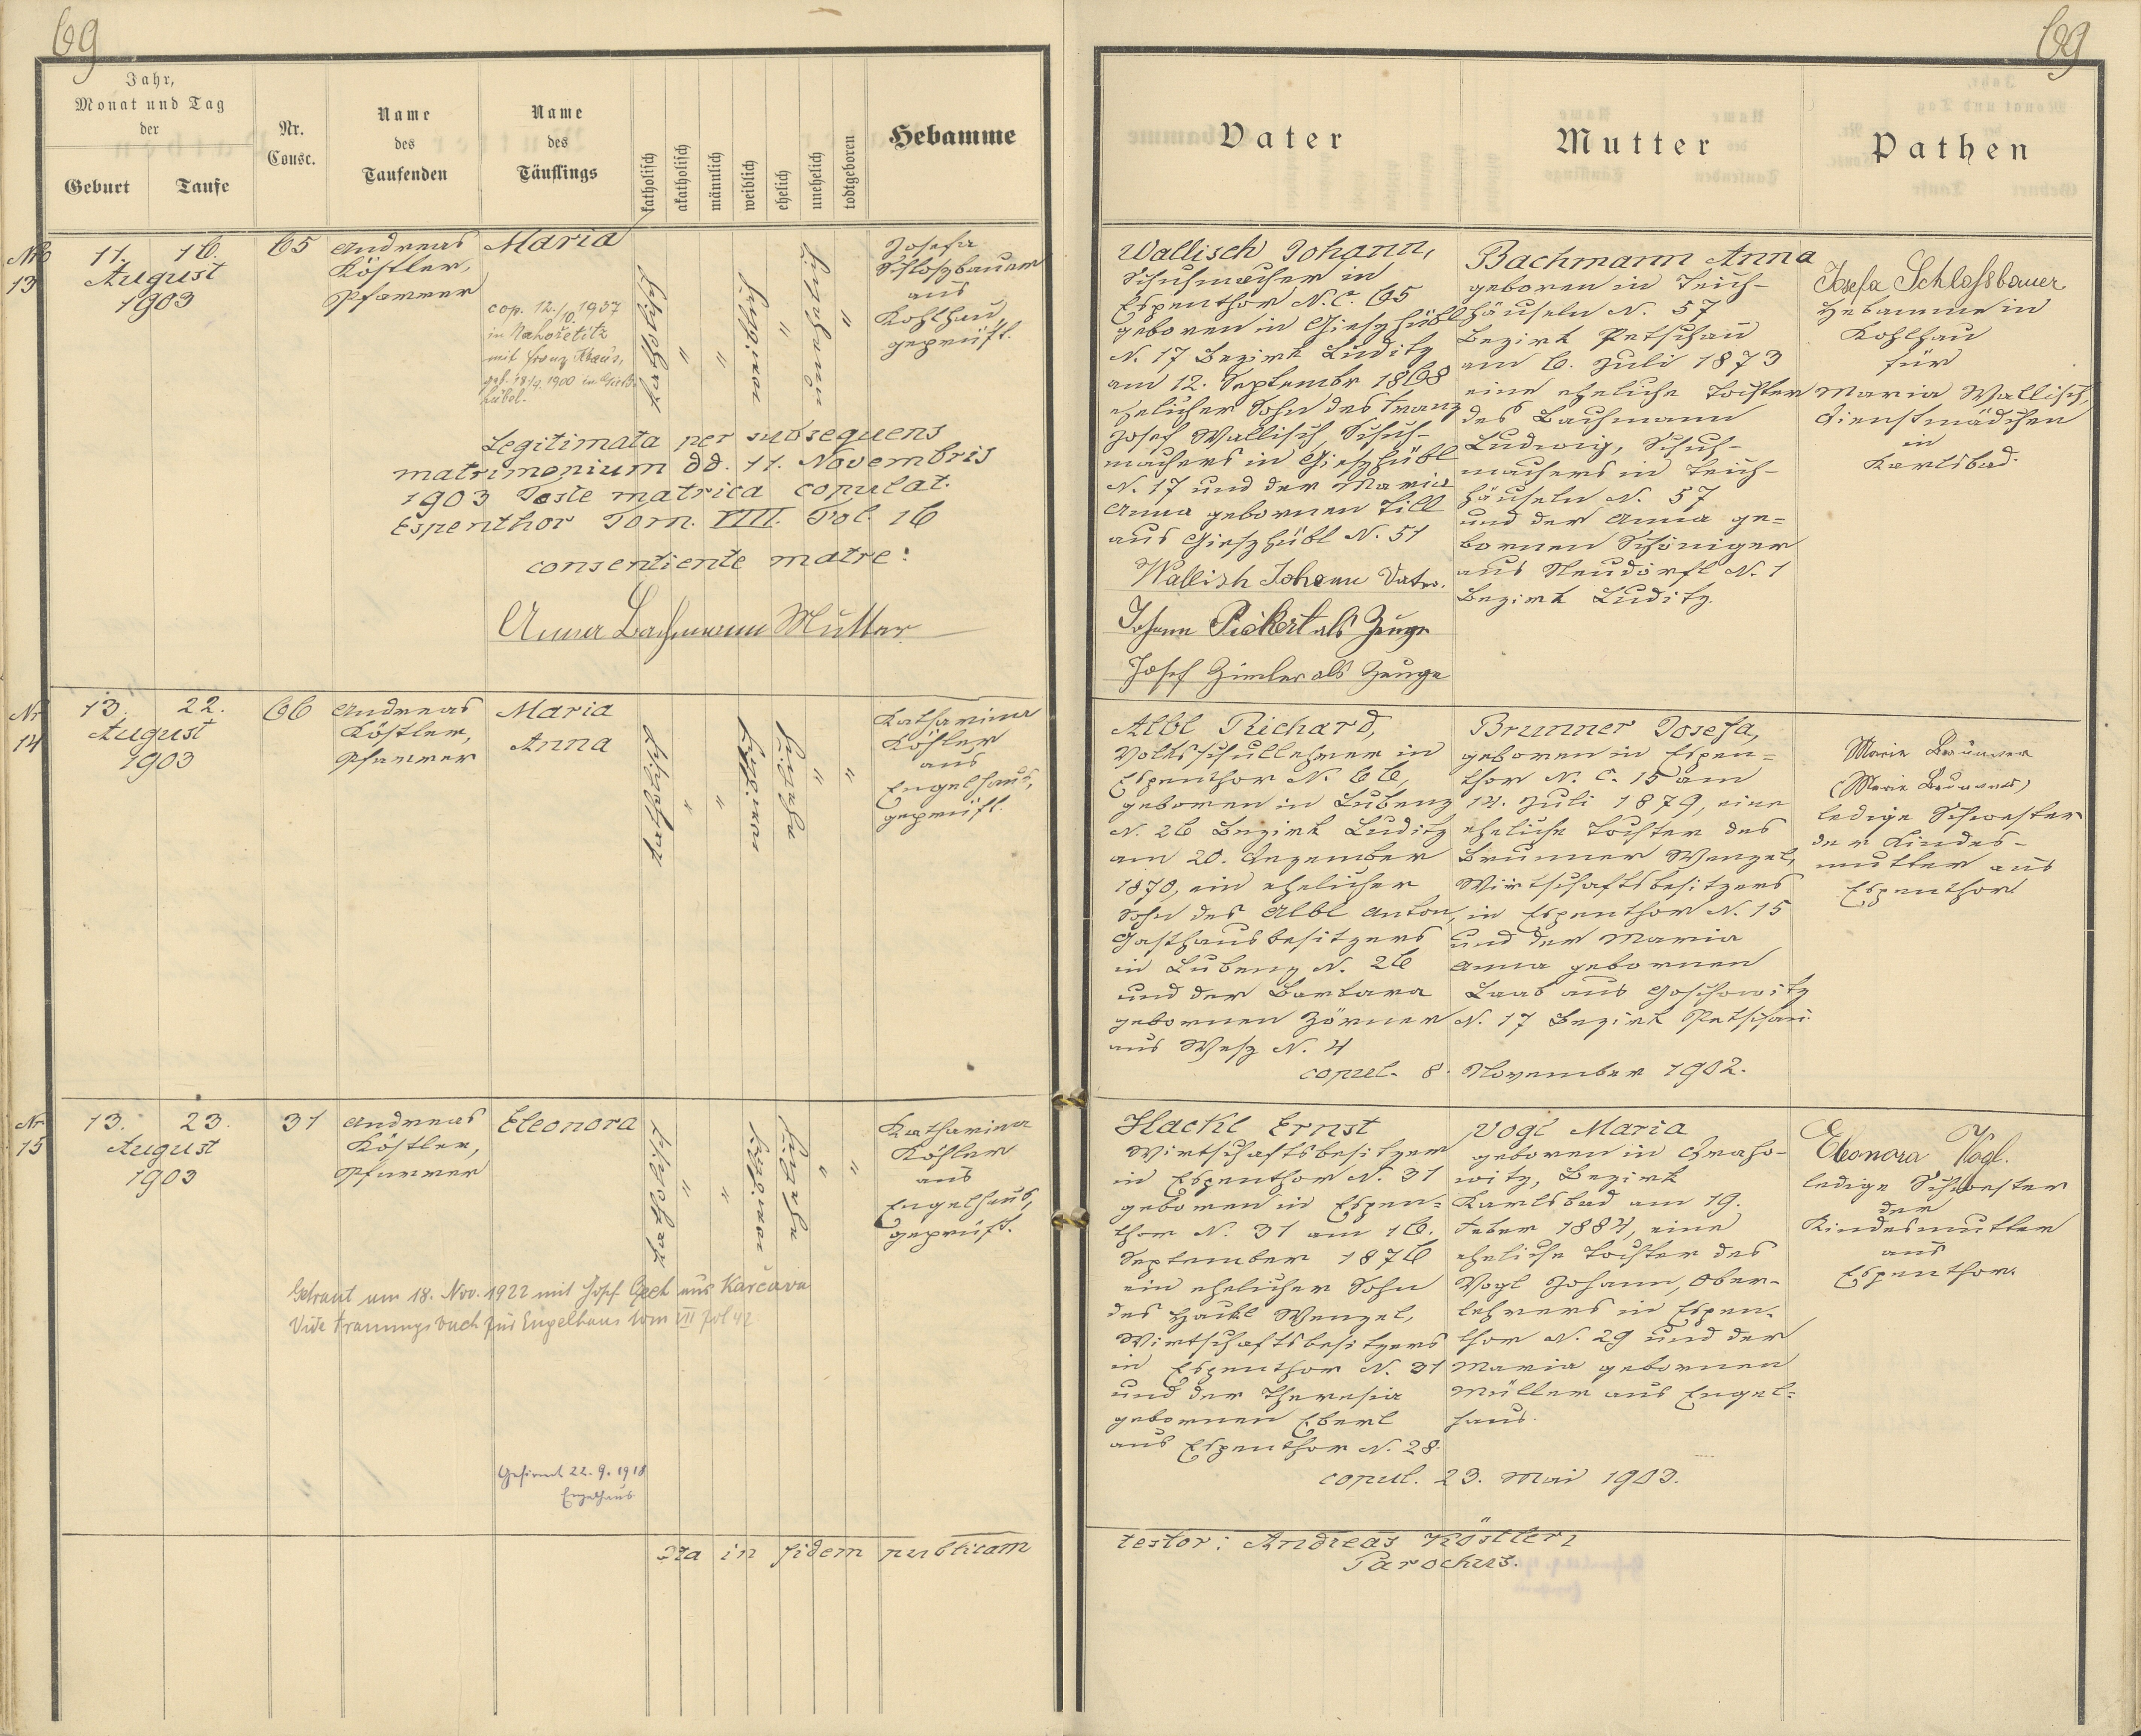 69
69
Jahr,
Monat und Tag
der
Geburt
Taufe
Nr.
Consc.
Name
des
Taufenden
Name
des
Täuflings
katholisch
akatholisch
männlich
weiblich
ehelich
unehelich
todtgeboren
Hebamme
Vater
Mutter
Pathen
Nro
13
11. 16.
August
1903
65
Andreas
Köstler,
Pfarrer
Maria
cop. 12./10. 1937
in Nahořetitz
mit Franz Kraus,
geb. 18/4. 1900 in Gieß-
hübel.
katholisch
"
"
weiblich
"
unehelich
"
Josefa
Schloszbauer
aus
Kohlhau,
geprüft.
Legitimata per subsequens
matrimonium dd. 11. Novembris
1903 Teste matrica copulat.
Espenthor Tom. VIII. Fol. 16
consentiente matre:
Anna Bachmann Mutter
Wallisch Johann,
Schuhmacher in
Espenthor N.C. 65
geboren in Gieszhübl
N. 17 Bezirk Luditz
am 12. Septembr 1868
ehelicher Sohn des Franz
Josef Wallisch, Schuh-
machers in Gieszhübl
N. 17 und der Maria
Anna gebornen Till
aus Gieszhübl N. 51
Wallish Johann Vater.
Johann Pickert als Zeuge
Josef Zimler als Zeuge
Bachmann Anna
geboren in Teich-
häuseln N. 57
Bezirk Petschau
am 6. Juli 1873
eine eheliche Tochter
des Bachmann
Ludwig, Schuh-
machers in Teich-
häuseln N. 57
und der Anna ge-
bornen Schöniger
aus Neudörfl N. 1
Bezirk Luditz.
Josefa Schlossbauer
Hebamme in
Kohlhau
für
Maria Wallisch,
Dienstmädchen
in
Karlsbad.
Nr
14
13. 22.
August
1903
66
Andreas
Köstler,
Pfarrer
Maria
Anna
katholisch
"
"
weiblich
ehelich
"
"
Katharina
Köhler
aus
Engelhaus,
geprüft.
Albl Richard,
Volksschullehrer in
Espenthor N. 66,
geboren in Lubenz
N. 26 Bezirk Luditz
am 20. Dezember
1870, ein ehelicher
Sohn des Albl Anton,
Gasthausbesitzers
in Lubenz N. 26
und der Barbara
gebornen Zörner
aus Wesz N. 4
Brunner Josefa,
geboren in Espen-
thor N. C. 15 am
14. Juli 1879, eine
eheliche Tochter des
Brunner Wenzel,
Wirtschaftsbesitzers
in Espenthor N. 15
und der Maria
Anna gebornen
Laab aus Goschowitz
N. 17 Bezirk Petschau
copul. 8. November 1902.
Marie Brunner
(Marie Brunner)
ledige Schwester
der Kindes-
mutter aus
Espenthor
Nr
15
13. 23.
August
1903
31
Andreas
Köstler,
Pfarrer
Eleonora
katholisch
"
"
weiblich
ehelich
"
"
Katharina
Köhler
aus
Engelhaus,
geprüft.
Getraut am 18. Nov. 1922 mit Josef aus Karčava
Vide Trauungsbuch für Engelhaus tom VII fol 42
Gefirmt 22. 9. 1918
Engelhaus
Hackl Ernst
Wirtschaftsbesitzer
in Espenthor N. 31
geboren in Espen-
thor N. 31 am 16.
September 1876
ein ehelicher Sohn
des Hackl Wenzel,
Wirtschaftsbesitzers
in Espenthor N. 31
und der Theresia
gebornen Eberl
aus Espenthor N. 28.
Vogl Maria
geboren in
witz, Bezirk
Karlsbad am 19.
Feber 1884, eine
eheliche Tochter des
Vogl Johann, Ober-
lehrers in Espen-
thor N. 29 und der
Maria gebornen
Müller aus Engel-
haus.
copul. 23. Mai 1903.
Eleonora Vogl.
ledige Schwester
der
Kindesmutter
aus
Espenthor.
Ita in fidem publicam
testor: Andreas Köstler,
Parochus.